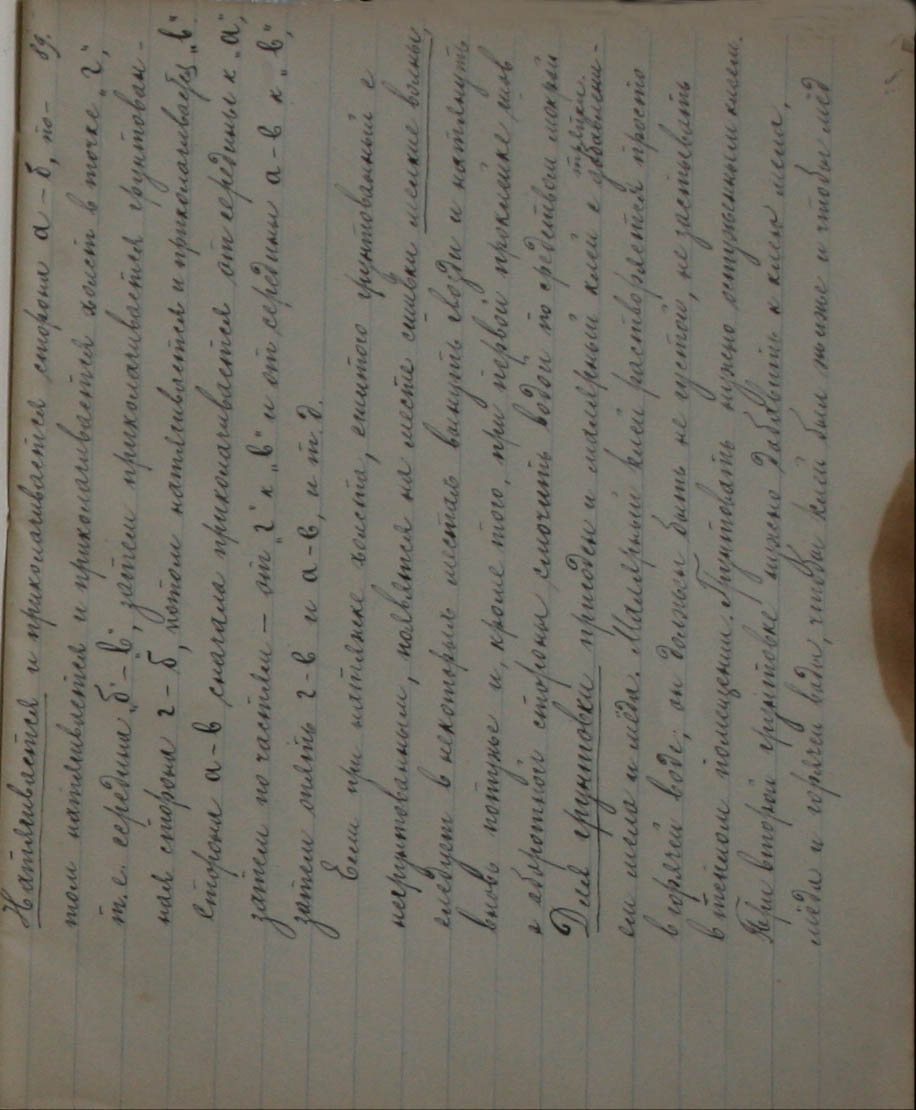 39.
Натягивается и приколачивается сторона а-б, по-
том натягивается и приколачивается холст в точке „г",
т.е. середина „б-в", затем приколачивается грунтован-
ная сторона г-б, потом натягивается и приколачивается „в"
сторона а-в сначала приколачивается от середины к „а",
затем по частям – от „г" к „в" и от середины а-в к „в",
затем опять г-в и а-в, и т.д.
Если при натяжке холста, сшитого грунтованный с
негрунтованным, появятся на месте сшивки мелкие волны,
следует в некоторых местах вынуть гвозди и натянуть
вновь потуже и, кроме того, при первой проклейке шов
с оборотной стороны смочить водой по средством мокрой тряпки.
Для грунтовки пригоден и малярный клей с добавлени-
ем мела и мёда. Малярный клей растворяется просто
в горячей воде; он должен быть не густой, не застывать
в тёплом помещении. Грунтовать нужно остуженным клеем.
При второй грунтовке нужно добавить к клею мела,
мёда и горячей воды, чтобы клей был жиже и чтобы мёд